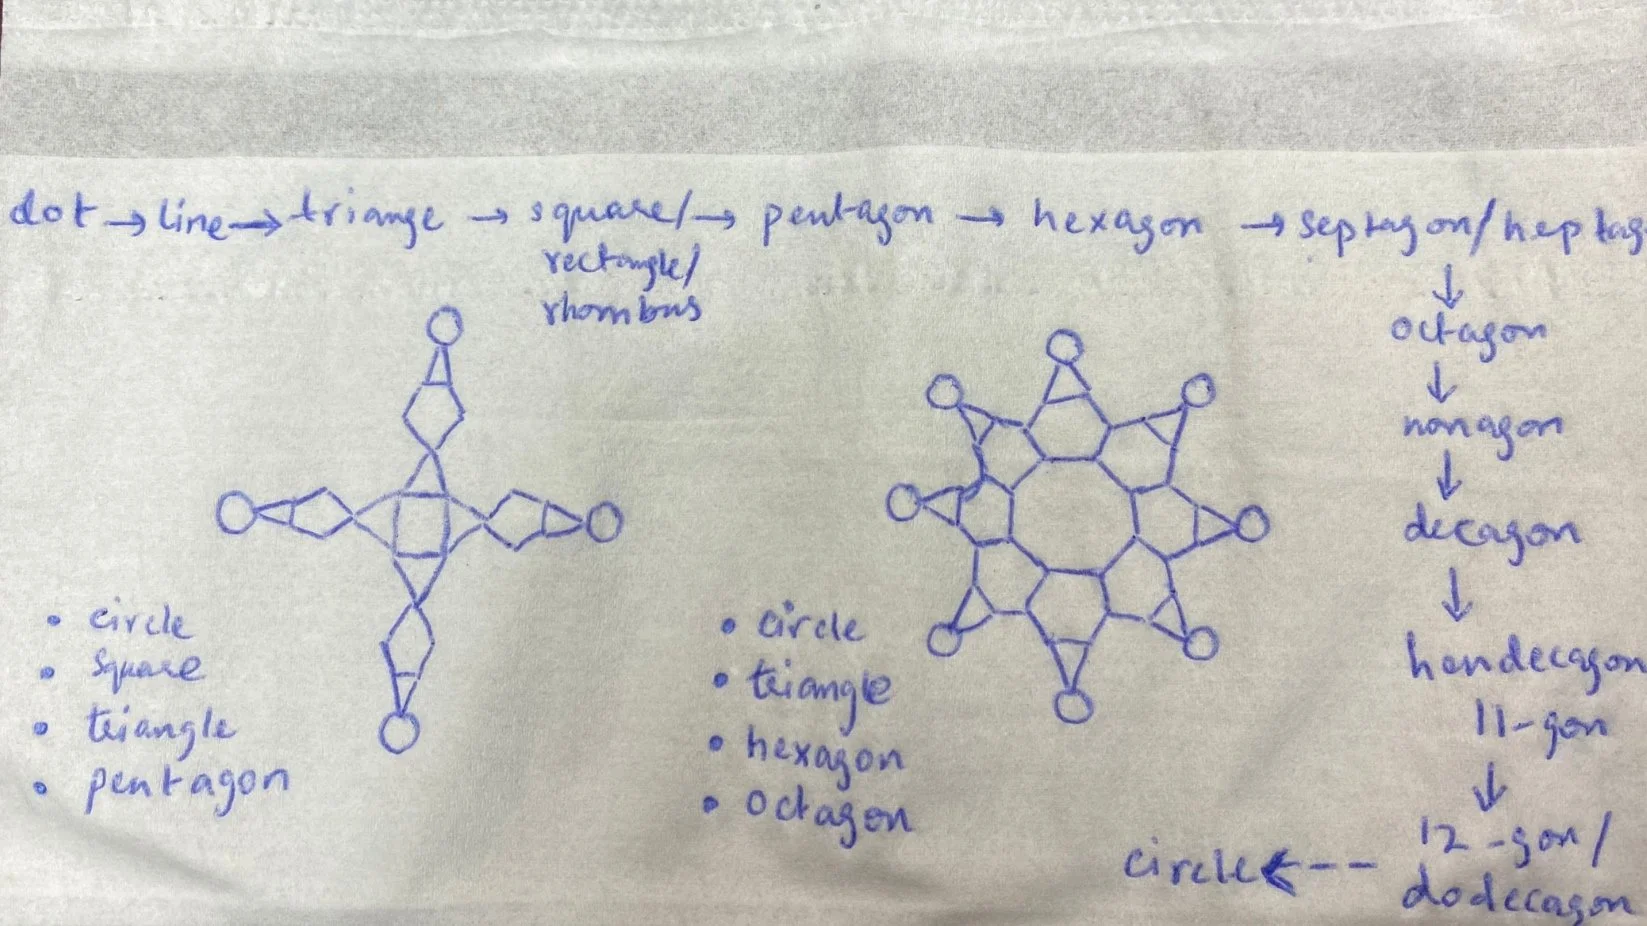 dot → line → triange → square/ → pentagon → hexagon → septagon/heptag
rectangle/
rhombus
↓
octagon
↓
nonagon
↓
decagon
↓
hendecagon
11-gon
↓
12-gon/
dodecagon
circle ←--
• circle
• square
• triangle
• pentagon
• circle
• triangle
• hexagon
• octagon